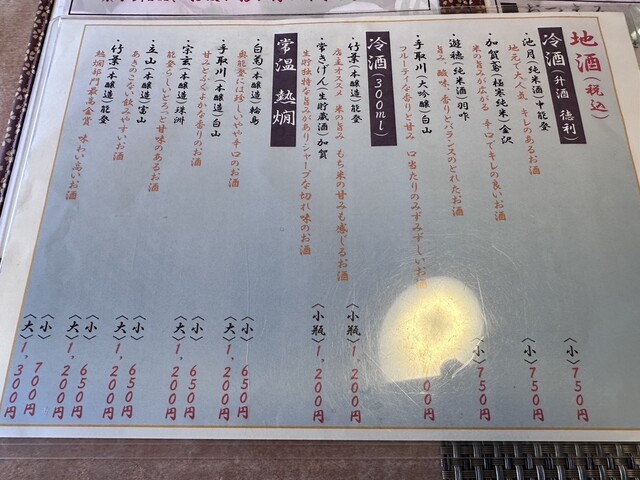 地酒(税込)
冷酒(升酒 徳利)
・池月(純米酒)中能登 〈小〉750円
地元で大人気 キレのあるお酒
・加賀鳶(極寒純米)金沢 〈小〉750円
米の旨みが広がる 辛口でキレの良いお酒
・遊穂(純米酒)羽咋 〈小〉750円
旨み、酸味、香りとバランスのとれたお酒
・手取川(大吟醸)白山 00円
フルーティな香りと甘み 口当たりのみずみずしいお酒
冷酒(300ml)
・竹葉(本醸造)能登 〈小瓶〉1,200円
店主オススメ 米の旨み もち米の甘みも感じるお酒
・常きげん(生貯蔵酒)加賀 〈小瓶〉1,200円
生貯独特な旨みがありシャープな切れ味のお酒
常温 熱燗
・白菊(本醸造)輪島 〈小〉650円
奥能登には珍しいやや辛口のお酒 〈大〉1,200円
・手取川(本醸造)白山 〈小〉650円
甘みとふくよかな香りのお酒 〈大〉1,200円
・宗玄(本醸造)珠洲 〈小〉650円
能登らしいどっつと甘味のあるお酒 〈大〉1,200円
・立山(本醸造)富山 〈小〉650円
あきのこない飲みやすいお酒 〈大〉1,200円
・竹葉(本醸造)能登 〈小〉700円
熱燗部門最高金賞 味わい高いお酒 〈大〉1,300円